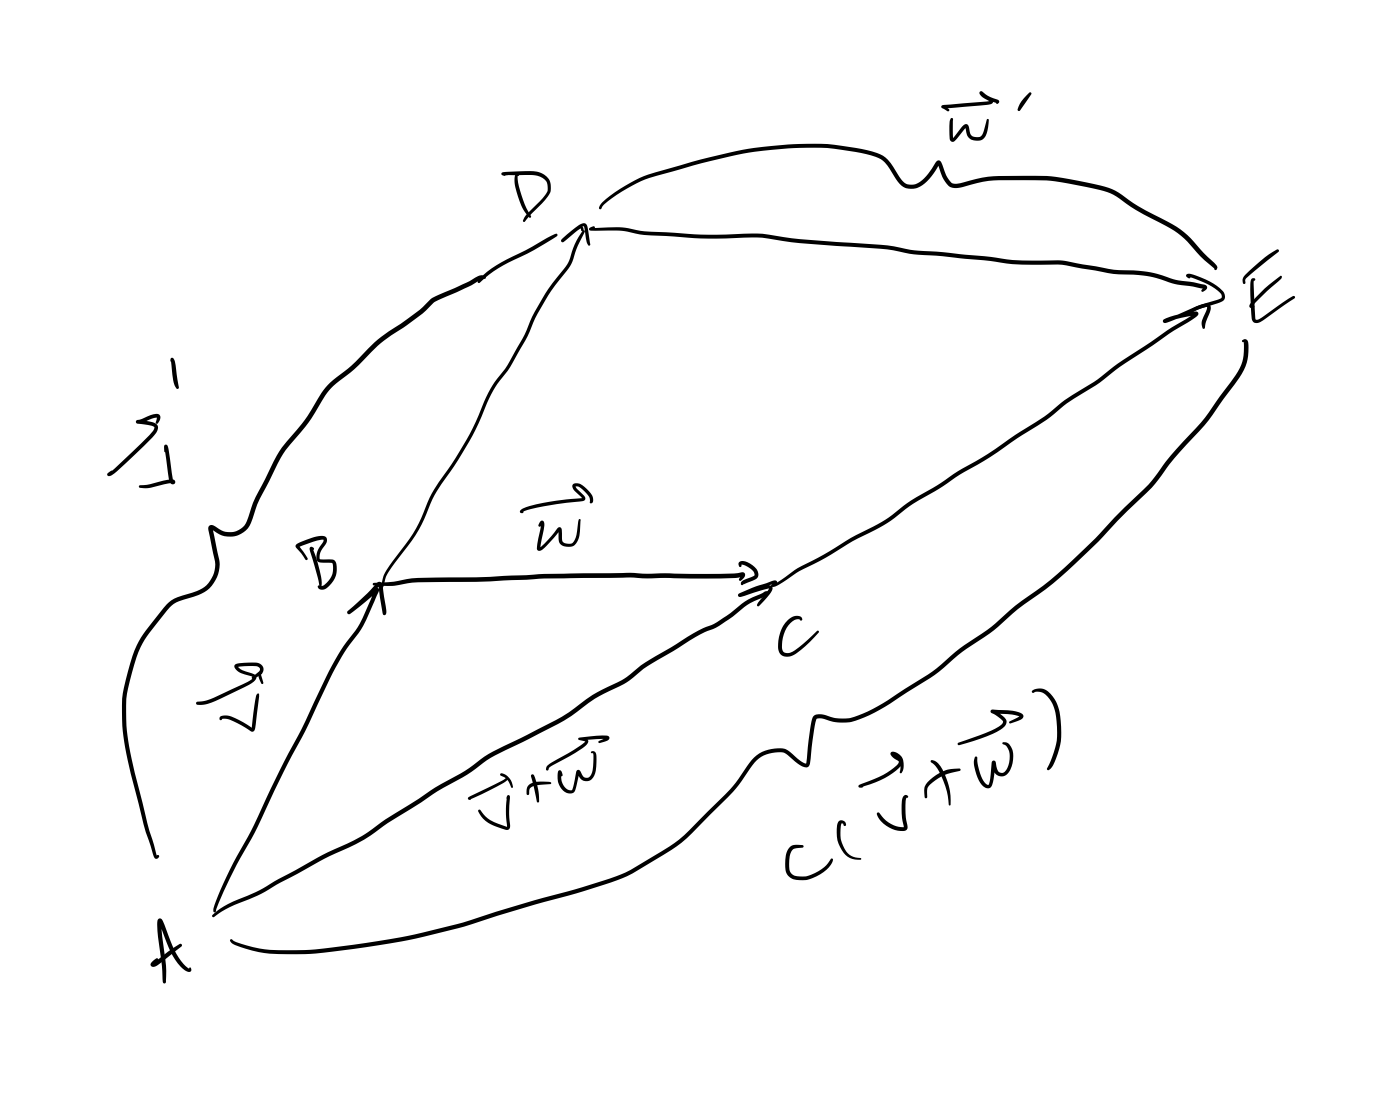 w⃗ '
D
E
v⃗ '
w⃗
B
C
v⃗
v⃗+w⃗
c(v⃗+w⃗)
A